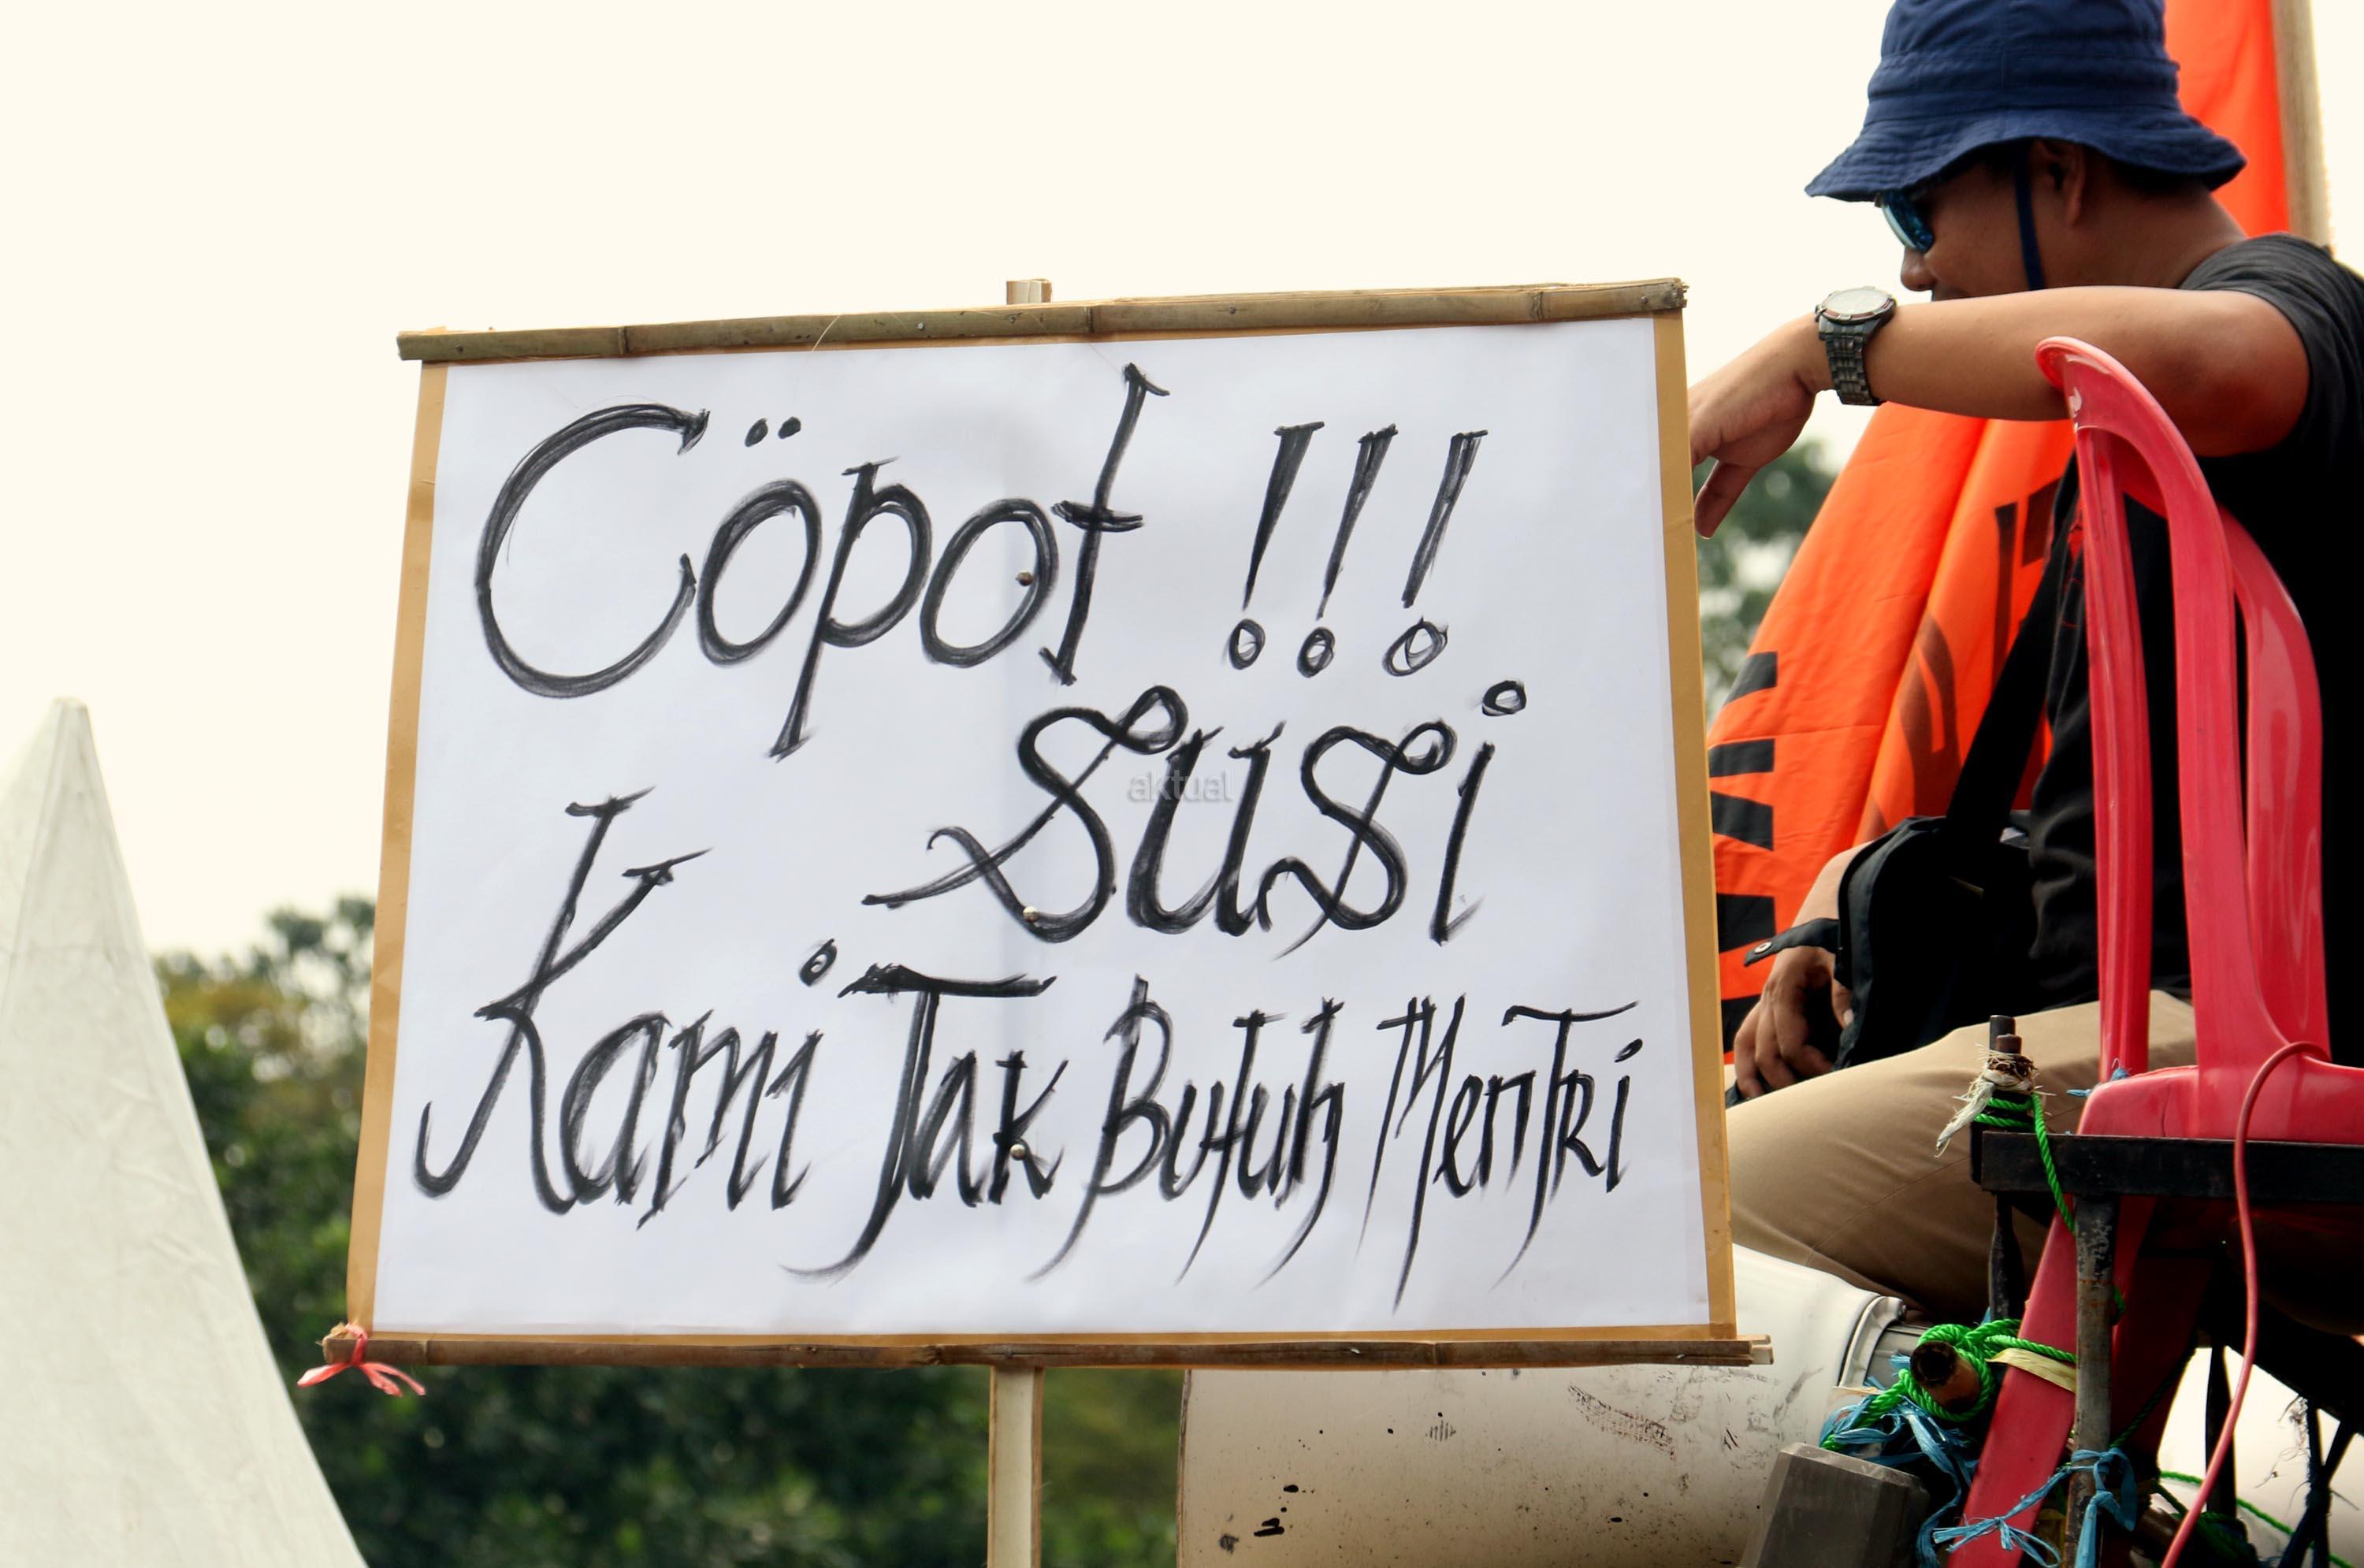 Cöpot !!!
Susi
Kami Tak Butuh Mentri
aktual